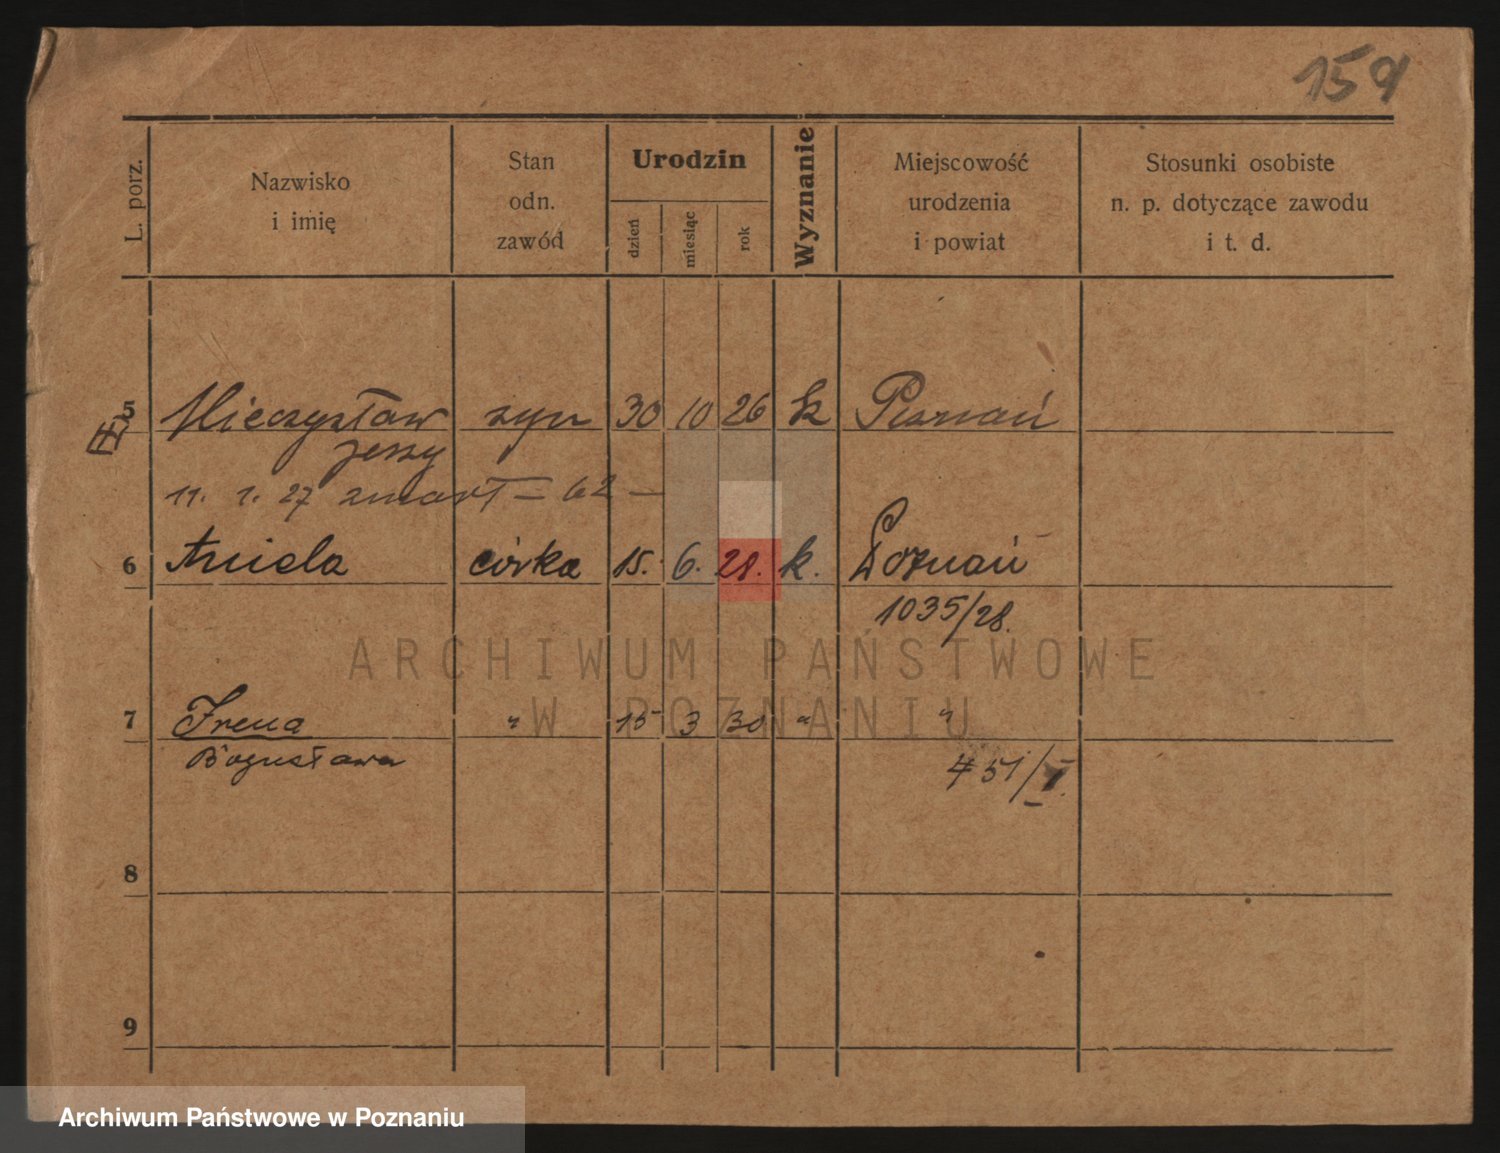 159
L. porz.
Nazwisko
i imię
Stan
odn.
zawód
Urodzin
dzień
miesiąc
rok
Wyznanie
Miejscowość
urodzenia
i powiat
Stosunki osobiste
n. p. dotyczące zawodu
i t. d.
5 Mieczysław syn 30 10 26 k Poznań
Jerzy
11. 1. 27 zmarł = 62 —
6 Aniela córka 15. 6. 28. k. Poznań
1035/28.
ARCHIWUM PAŃSTWOWE
W POZNANIU
7 Irena " 15 3 30 " "
Bogusława
451/
8
9
Archiwum Państwowe w Poznaniu